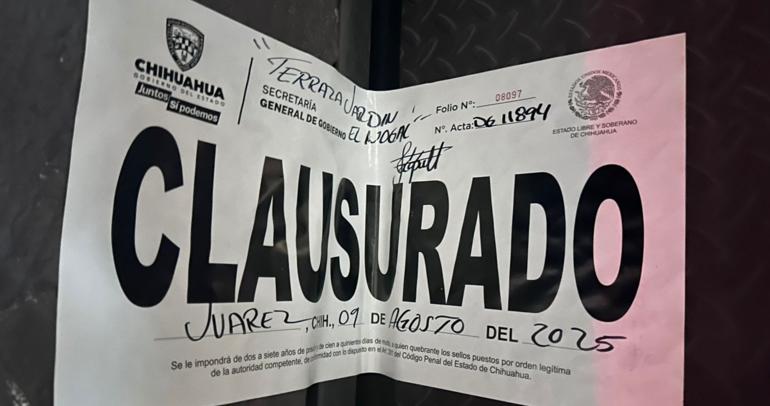 CHIHUAHUA
GOBIERNO DEL ESTADO
Juntos Sí podemos
"TERRAZA JARDIN
EL NOGAL"
SECRETARÍA
GENERAL DE GOBIERNO
Folio Nº: 08097
Nº. Acta: DG 11894
ESTADOS UNIDOS MEXICANOS
ESTADO LIBRE Y SOBERANO
DE CHIHUAHUA
CLAUSURADO
JUAREZ, CHIH., 09 DE AGOSTO DEL 2025
Se le impondrá de dos a siete años de prisión de cien a quinientos días de multa, a quien quebrante los sellos puestos por orden legítima
de la autoridad competente, de conformidad con lo dispuesto en el Art. del Código Penal del Estado de Chihuahua.